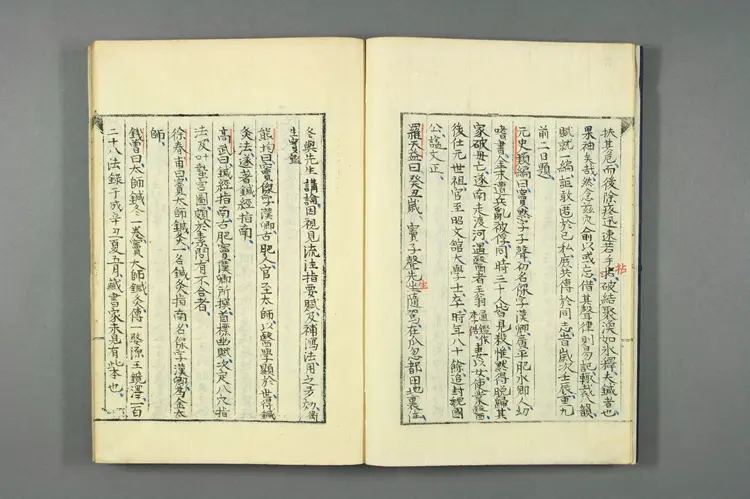 扶其危而後除疼迅速若手拈破結聚渙如氷釋夫鍼者也
果神矣哉然念茲及余前以或忘借其聲律則易記輙裁八韻
賦就一編詎敢匿於己私庶共傳於同志旹歲次壬辰重九
前二日題
元史類編曰竇黙字子聲初名傑字漢卿廣平肥水鄉人幼
嗜書金末遭兵亂被俘同時三十人皆見殺惟黙得脫歸其
家破母亡遂南走渡河遇醫者王翁 妻以女使業醫
後仕元世祖官至昭文館大學士卒時年八十餘追封魏國
公諡文正
羅天益曰癸丑歲竇子聲先生隨駕在瓜忽都田地裏住
冬與先生講論因視見流注指要賦及補瀉法用之多効
生寶鑑
熊均曰竇傑字漢卿古肥人官至太師以醫學顯於世得鍼
灸法遂著鍼經指南
高武曰鍼經指南古肥竇漢卿所撰首標幽賦次定八穴指
法及叶蟄宮圖頗於素問有不合者
徐春甫曰竇太師鍼灸一名鍼灸指南名傑字漢卿為金太
師
錢曾曰太師鍼灸一卷竇太師鍼灸傳一婺源王鏡澤一百
二十八法錄于成辛丑夏五月藏書家未見有此本也
拈
生